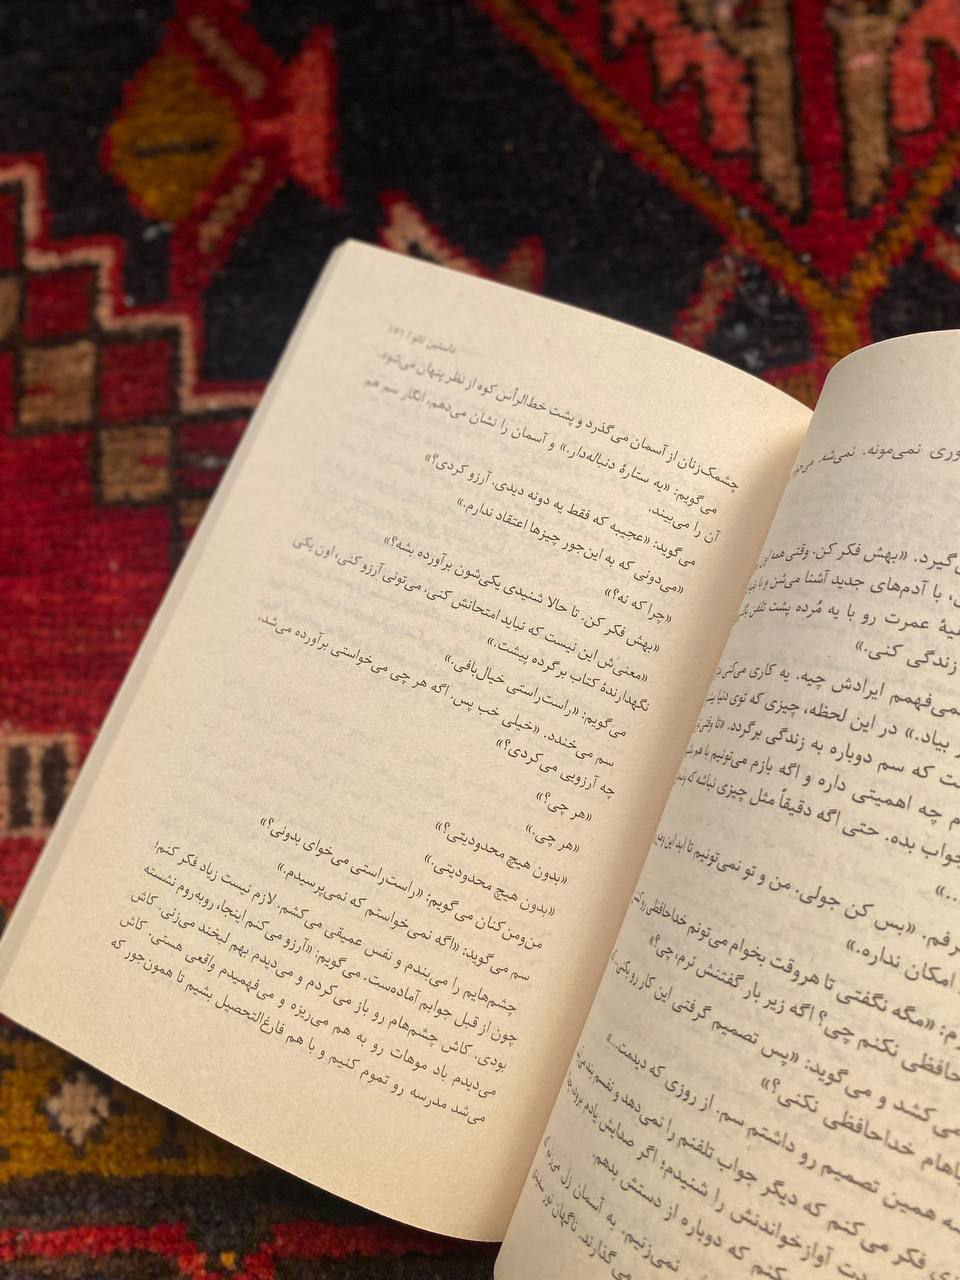 وری نمی‌مونه. نمی‌شه.
گیرد. «بهش فکر کن. وقتی همه
با آدم‌های جدید آشنا می‌شن و
عمرت رو با یه مُرده پشت تلفن
زندگی کنی.»
می‌فهمم ایرادش چیه. یه کاری می‌کنی
بیاد.» در این لحظه، چیزی که توی دنیا
که سم دوباره به زندگی برگردد.
چه اهمیتی داره و اگه بازم می‌تونیم با هم
جواب بده. حتی اگه دقیقاً مثل چیزی نباشه که
«بس کن جولی. من و تو نمی‌تونیم تا ابد این
امکان نداره.»
«مگه نگفتی تا هروقت بخوام می‌تونم خداحافظی
حافظی نکنم چی؟ اگه زیر بار گفتنش نرم، چی؟»
می‌کشد و می‌گوید: «پس تصمیم گرفتی این کار رو بکنی؟
باهام خداحافظی نکنی؟»
همین تصمیم رو داشتم سم. از روزی که دیدمت...»
فکر می‌کنم که دیگر جواب تلفنم را نمی‌دهد و نفسم
آوازخواندنش را شنیدم؛ اگر صدایش یادم برود،
کنم که دوباره از دستش بدهم.
نمی‌زنیم. به آسمان زل
می‌گذارند. ناگهان نور
داستین تائو / ۱۴۱
چشمک‌زنان از آسمان می‌گذرد و پشت خط‌الرأس کوه از نظر پنهان می‌شود.
می‌گویم: «یه ستارهٔ دنباله‌دار.» و آسمان را نشان می‌دهم، انگار سم هم
آن را می‌بیند.
می‌گوید: «عجیبه که فقط یه دونه دیدی. آرزو کردی؟»
«می‌دونی که به این‌جور چیزها اعتقاد ندارم.»
«چرا که نه؟»
«بهش فکر کن. تا حالا شنیدی یکی‌شون برآورده بشه؟»
«معنی‌ش این نیست که نباید امتحانش کنی. می‌تونی آرزو کنی، اون یکی
نگهدارندهٔ کتاب برگرده پیشت.»
می‌گویم: «راست‌راستی خیال‌بافی.»
سم می‌خندد. «خیلی خب پس. اگه هر چی می‌خواستی برآورده می‌شد،
چه آرزویی می‌کردی؟»
«هر چی؟»
«هر چی.»
«بدون هیچ محدودیتی؟»
«بدون هیچ محدودیتی.»
من‌ومن‌کنان می‌گویم: «راست‌راستی می‌خوای بدونی؟»
سم می‌گوید: «اگه نمی‌خواستم که نمی‌پرسیدم.»
چشم‌هایم را می‌بندم و نفس عمیقی می‌کشم. لازم نیست زیاد فکر کنم؛
چون از قبل جوابم آماده‌ست. می‌گویم: «آرزو می‌کنم اینجا، روبه‌روم نشسته
بودی. کاش چشم‌هام رو باز می‌کردم و می‌دیدم بهم لبخند می‌زنی. کاش
می‌دیدم باد موهات رو به هم می‌ریزه و می‌فهمیدم واقعی هستی. کاش
می‌شد مدرسه رو تموم کنیم و با هم فارغ‌التحصیل بشیم تا همون‌جور که